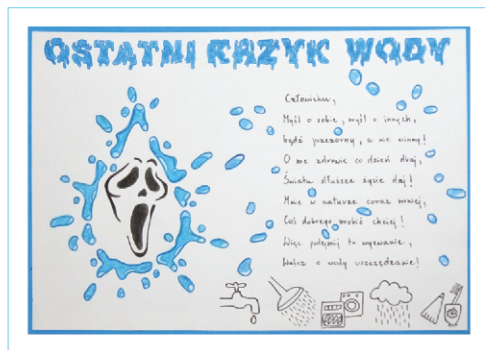 OSTATNI KRZYK WODY
Człowieku,
Myśl o sobie, myśl o innych,
bądź przezorny, a nie winny!
O me zdrowie co dzień dbaj,
Światu dłuższe życie daj!
Mnie w naturze coraz mniej,
Coś dobrego zrobić chciej!
Więc podejmij to wyzwanie,
Walcz o wody oszczędzanie!